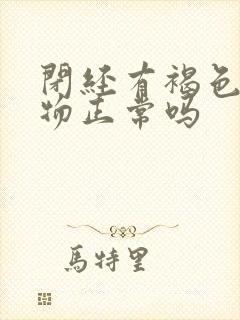 閉經有褐色
物正常吗
馬特里